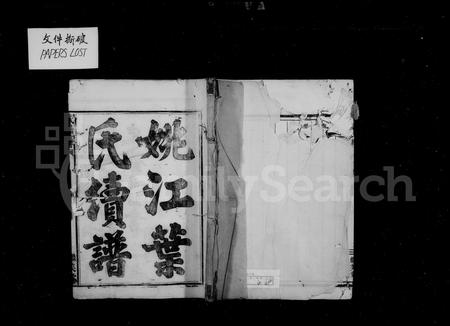 文件撕破
PAPERS LOST
姚江葉
氏續譜
FamilySearch